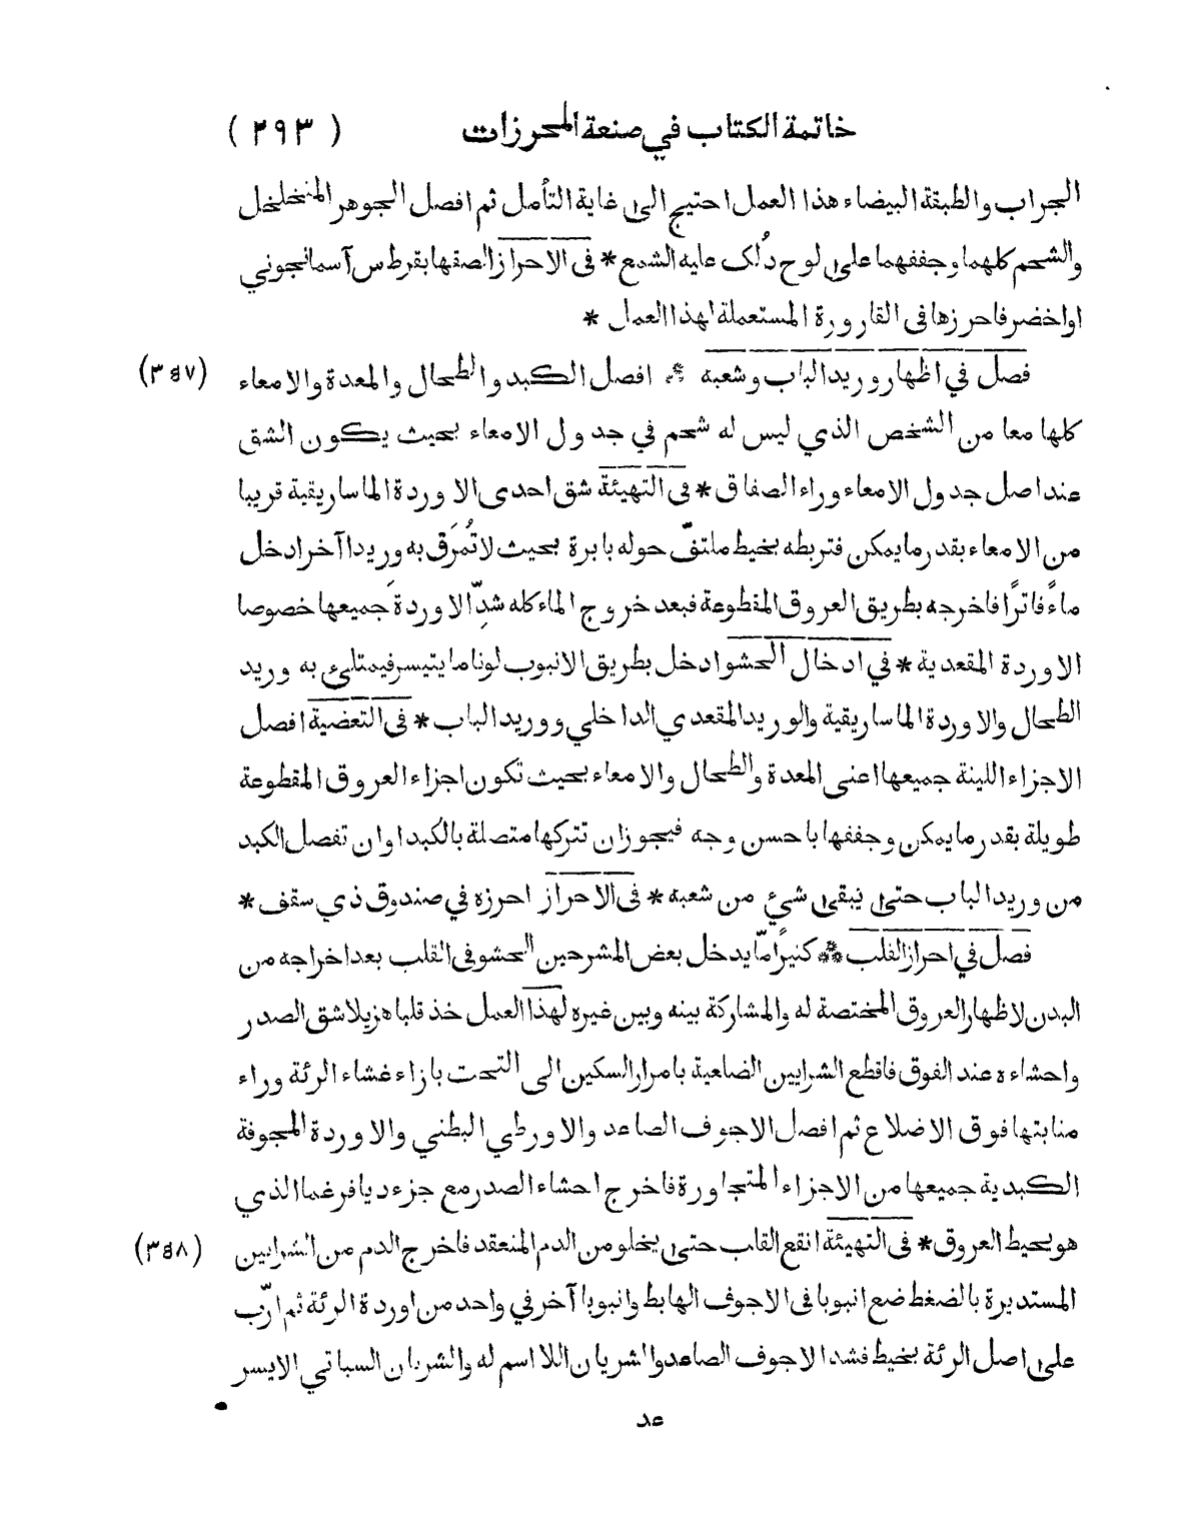 خاتمة الكتاب في صنعة المحرزات (٢٩٣)
الجراب والطبقة البيضاء هذا العمل احتيج الى غاية التأمل ثم افصل الجوهر المتخلخل
والشحم كلهما وجففهما على لوح دُلك عليه الشمع * فى الاحراز الصقها بقرطس آسمانجوني
اواخضر فاحرزها فى القارورة المستعملة لهذا العمل *
فصل في اظهار وريد الباب وشعبه * افصل الكبد والطحال والمعدة والامعاء (٣٤٧)
كلها معا من الشخص الذي ليس له شحم في جدول الامعاء بحيث يكون الشق
عند اصل جدول الامعاء وراء الصفاق * فى التهيئة شق احدى الاوردة الماساريقية قريبا
من الامعاء بقدر ما يمكن فتربطه بخيط ملتفّ حوله بابرة بحيث لا تُمَزق به وريدا آخر ادخل
ماءً فاترًا فاخرجه بطريق العروق المقطوعة فبعد خروج الماء كله شدِّ الاوردةَ جميعها خصوصا
الاوردة المقعدية * في ادخال الحشو ادخل بطريق الانبوب لونا ما يتيسر فيمتلئ به وريد
الطحال والاوردة الماساريقية والوريد المقعدي الداخلي ووريد الباب * فى التعضية افصل
الاجزاء اللينة جميعها اعنى المعدة والطحال والامعاء بحيث تكون اجزاء العروق المقطوعة
طويلة بقدر ما يمكن وجففها باحسن وجه فيجوز ان تتركها متصلة بالكبد او ان تفصل الكبد
من وريد الباب حتى يبقى شئ من شعبه * فى الاحراز احرزه في صندوق ذي سقف *
فصل في احراز القلب * كثيرًا مّا يدخل بعض المشرحين الحشو فى القلب بعد اخراجه من
البدن لاظهار العروق المختصة له والمشاركة بينه وبين غيره لهذا العمل خذ قلبا هزيلا شق الصدر
واحشاءه عند الفوق فاقطع الشرايين الضلعية بامرار السكين الى التحت بازاء غشاء الرئة وراء
منابتها فوق الاضلاع ثم افصل الاجوف الصاعد والاورطي البطني والاوردة المجوفة
الكبدية جميعها من الاجزاء المتجاورة فاخرج احشاء الصدر مع جزء ديافرغما الذي
هو يحيط العروق * فى التهيئة انقع القلب حتى يخلو من الدم المنعقد فاخرج الدم من الشرايين (٣٤٨)
المستديرة بالضغط ضع انبوبا فى الاجوف الهابط وانبوبا آخر في واحد من اوردة الرئة ثم ارّب
على اصل الرئة بخيط فشد الاجوف الصاعد والشريان اللا اسم له والشريان السباتي الايسر
عد